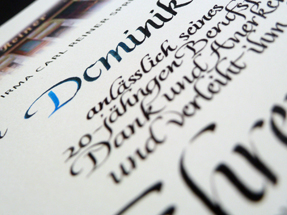 IRMA CARL REINER
Dominik
anlässlich seines
20-jähngen Berufs
Dank und Anerke
und verleiht ihm
Ehre